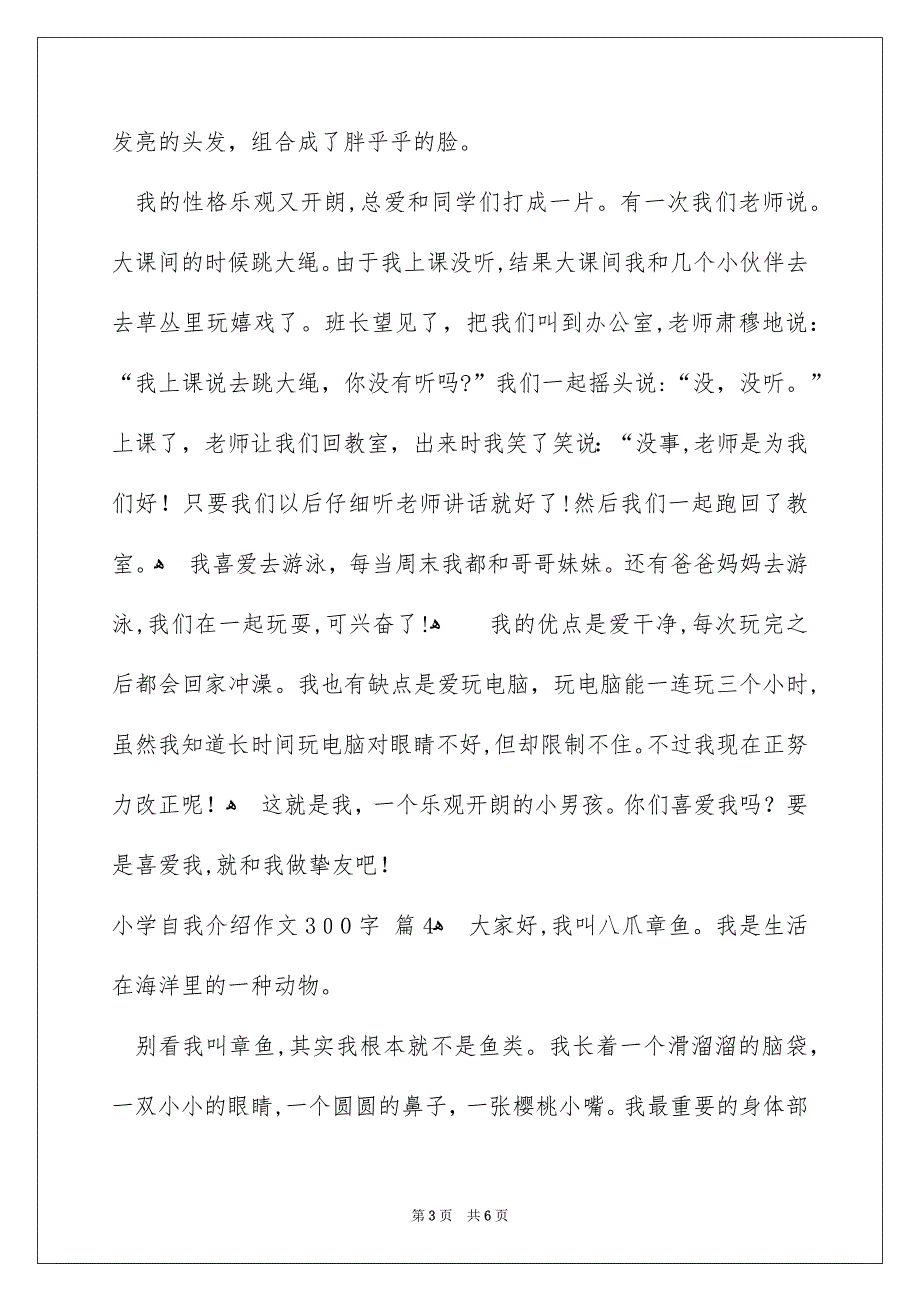 发亮的头发，组合成了胖乎乎的脸。
我的性格乐观又开朗,总爱和同学们打成一片。有一次我们老师说。
大课间的时候跳大绳。由于我上课没听,结果大课间我和几个小伙伴去
去草丛里玩嬉戏了。班长望见了，把我们叫到办公室,老师肃穆地说：
“我上课说去跳大绳，你没有听吗?”我们一起摇头说:“没，没听。”
上课了，老师让我们回教室，出来时我笑了笑说：“没事,老师是为我
们好！只要我们以后仔细听老师讲话就好了!然后我们一起跑回了教
室。ﻫ 我喜爱去游泳，每当周末我都和哥哥妹妹。还有爸爸妈妈去游
泳,我们在一起玩耍,可兴奋了!ﻫ 我的优点是爱干净,每次玩完之
后都会回家冲澡。我也有缺点是爱玩电脑，玩电脑能一连玩三个小时,
虽然我知道长时间玩电脑对眼睛不好,但却限制不住。不过我现在正努
力改正呢！ﻫ 这就是我，一个乐观开朗的小男孩。你们喜爱我吗？要
是喜爱我,就和我做挚友吧！
小学自我介绍作文300字 篇4ﻫ 大家好,我叫八爪章鱼。我是生活
在海洋里的一种动物。
别看我叫章鱼,其实我根本就不是鱼类。我长着一个滑溜溜的脑袋，
一双小小的眼睛,一个圆圆的鼻子，一张樱桃小嘴。我最重要的身体部
第3页 共6页